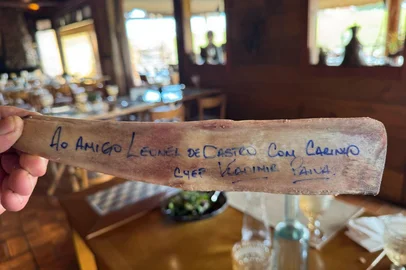 Ao Amigo Leoner de Castro com Carinho
Chef Vladimir Paiva